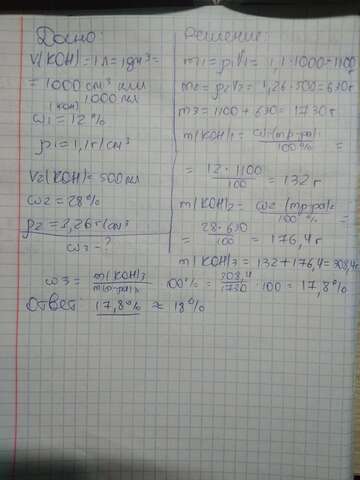 Дано:
V(KOH) = 1л = 1дм³ =
= 1000 см³ или
1000 мл
ω₁(KOH) = 12%
ρ₁ = 1,1 г/см³
V₂(KOH) = 500 мл
ω₂ = 28%
ρ₂ = 1,26 г/см³
ω₃ - ?
Решение:
m₁ = ρ₁V₁ = 1,1 · 1000 = 1100
m₂ = ρ₂V₂ = 1,26 · 500 = 630 г
m₃ = 1100 + 630 = 1730 г
m(KOH)₁ = ω₁·(mр-ра)₁ / 100% =
= 12 · 1100 / 100 = 132 г
m(KOH)₂ = ω₂·(mр-ра)₂ / 100% =
= 28 · 630 / 100 = 176,4 г
m(KOH)₃ = 132 + 176,4 = 308,4 г
ω₃ = m(KOH)₃ / m(р-ра)₃ · 100% = 308,4 / 1730 · 100 = 17,8%
Ответ: 17,8% ≈ 18%